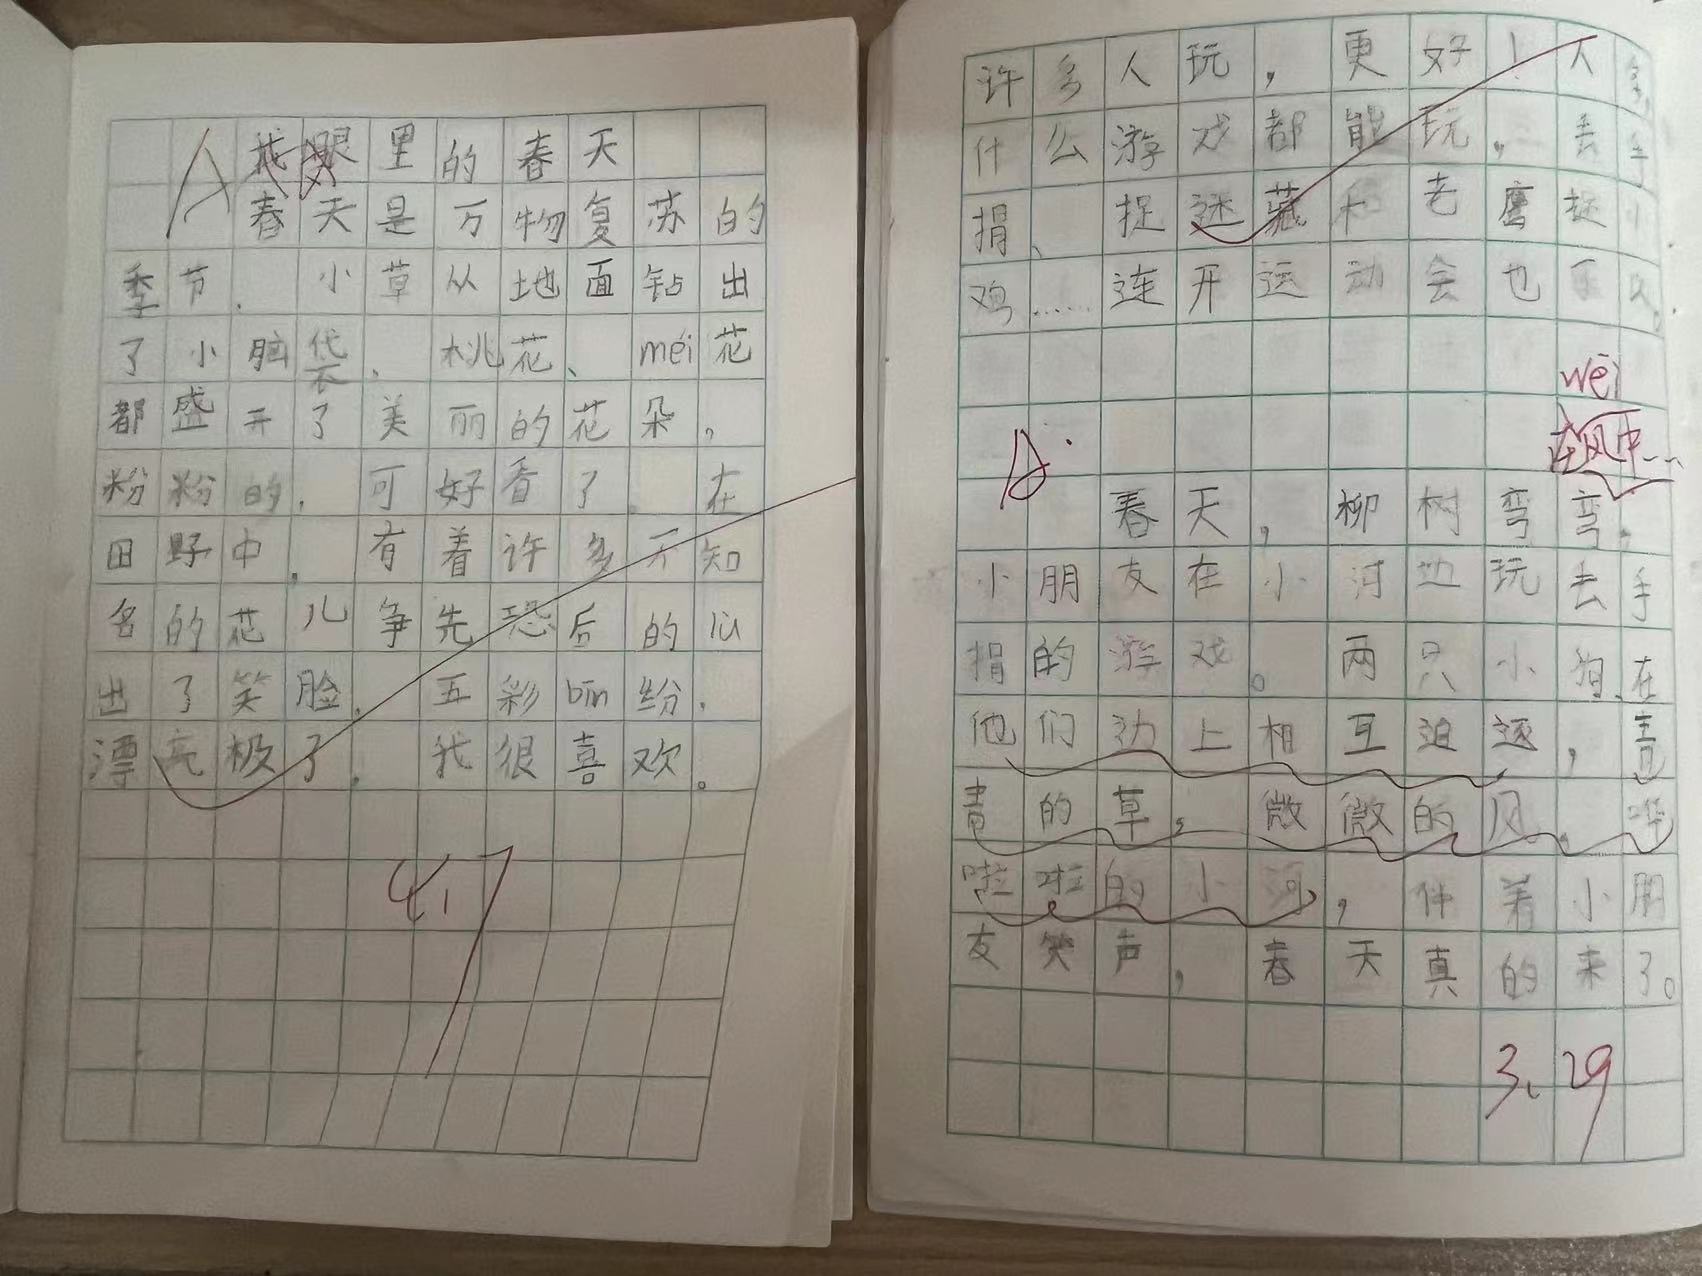 A
我眼里的春天
春天是万物复苏的
季节.小草从地面钻出
了小脑袋、桃花、méi花
都盛开了美丽的花朵,
粉粉的.可好看了.在
田野中,有着许多不知
名的花儿争先恐后的
出了笑脸,五彩bīn纷,
漂亮极了.我很喜欢。
4.17
许多人玩,更好!人多,
什么游戏都能玩,丢手
捐、捉迷藏和老鹰捉小
鸡……连开运动会也可以。
wēi
在风中……
A
春天,柳树弯弯,
小朋友在小河边玩去手
捐的游戏。两只小狗、在
他们边上相互追逐,青
青的草,微微的风,哗
啦啦的小河,伴着小朋
友笑声,春天真的来了。
3.29